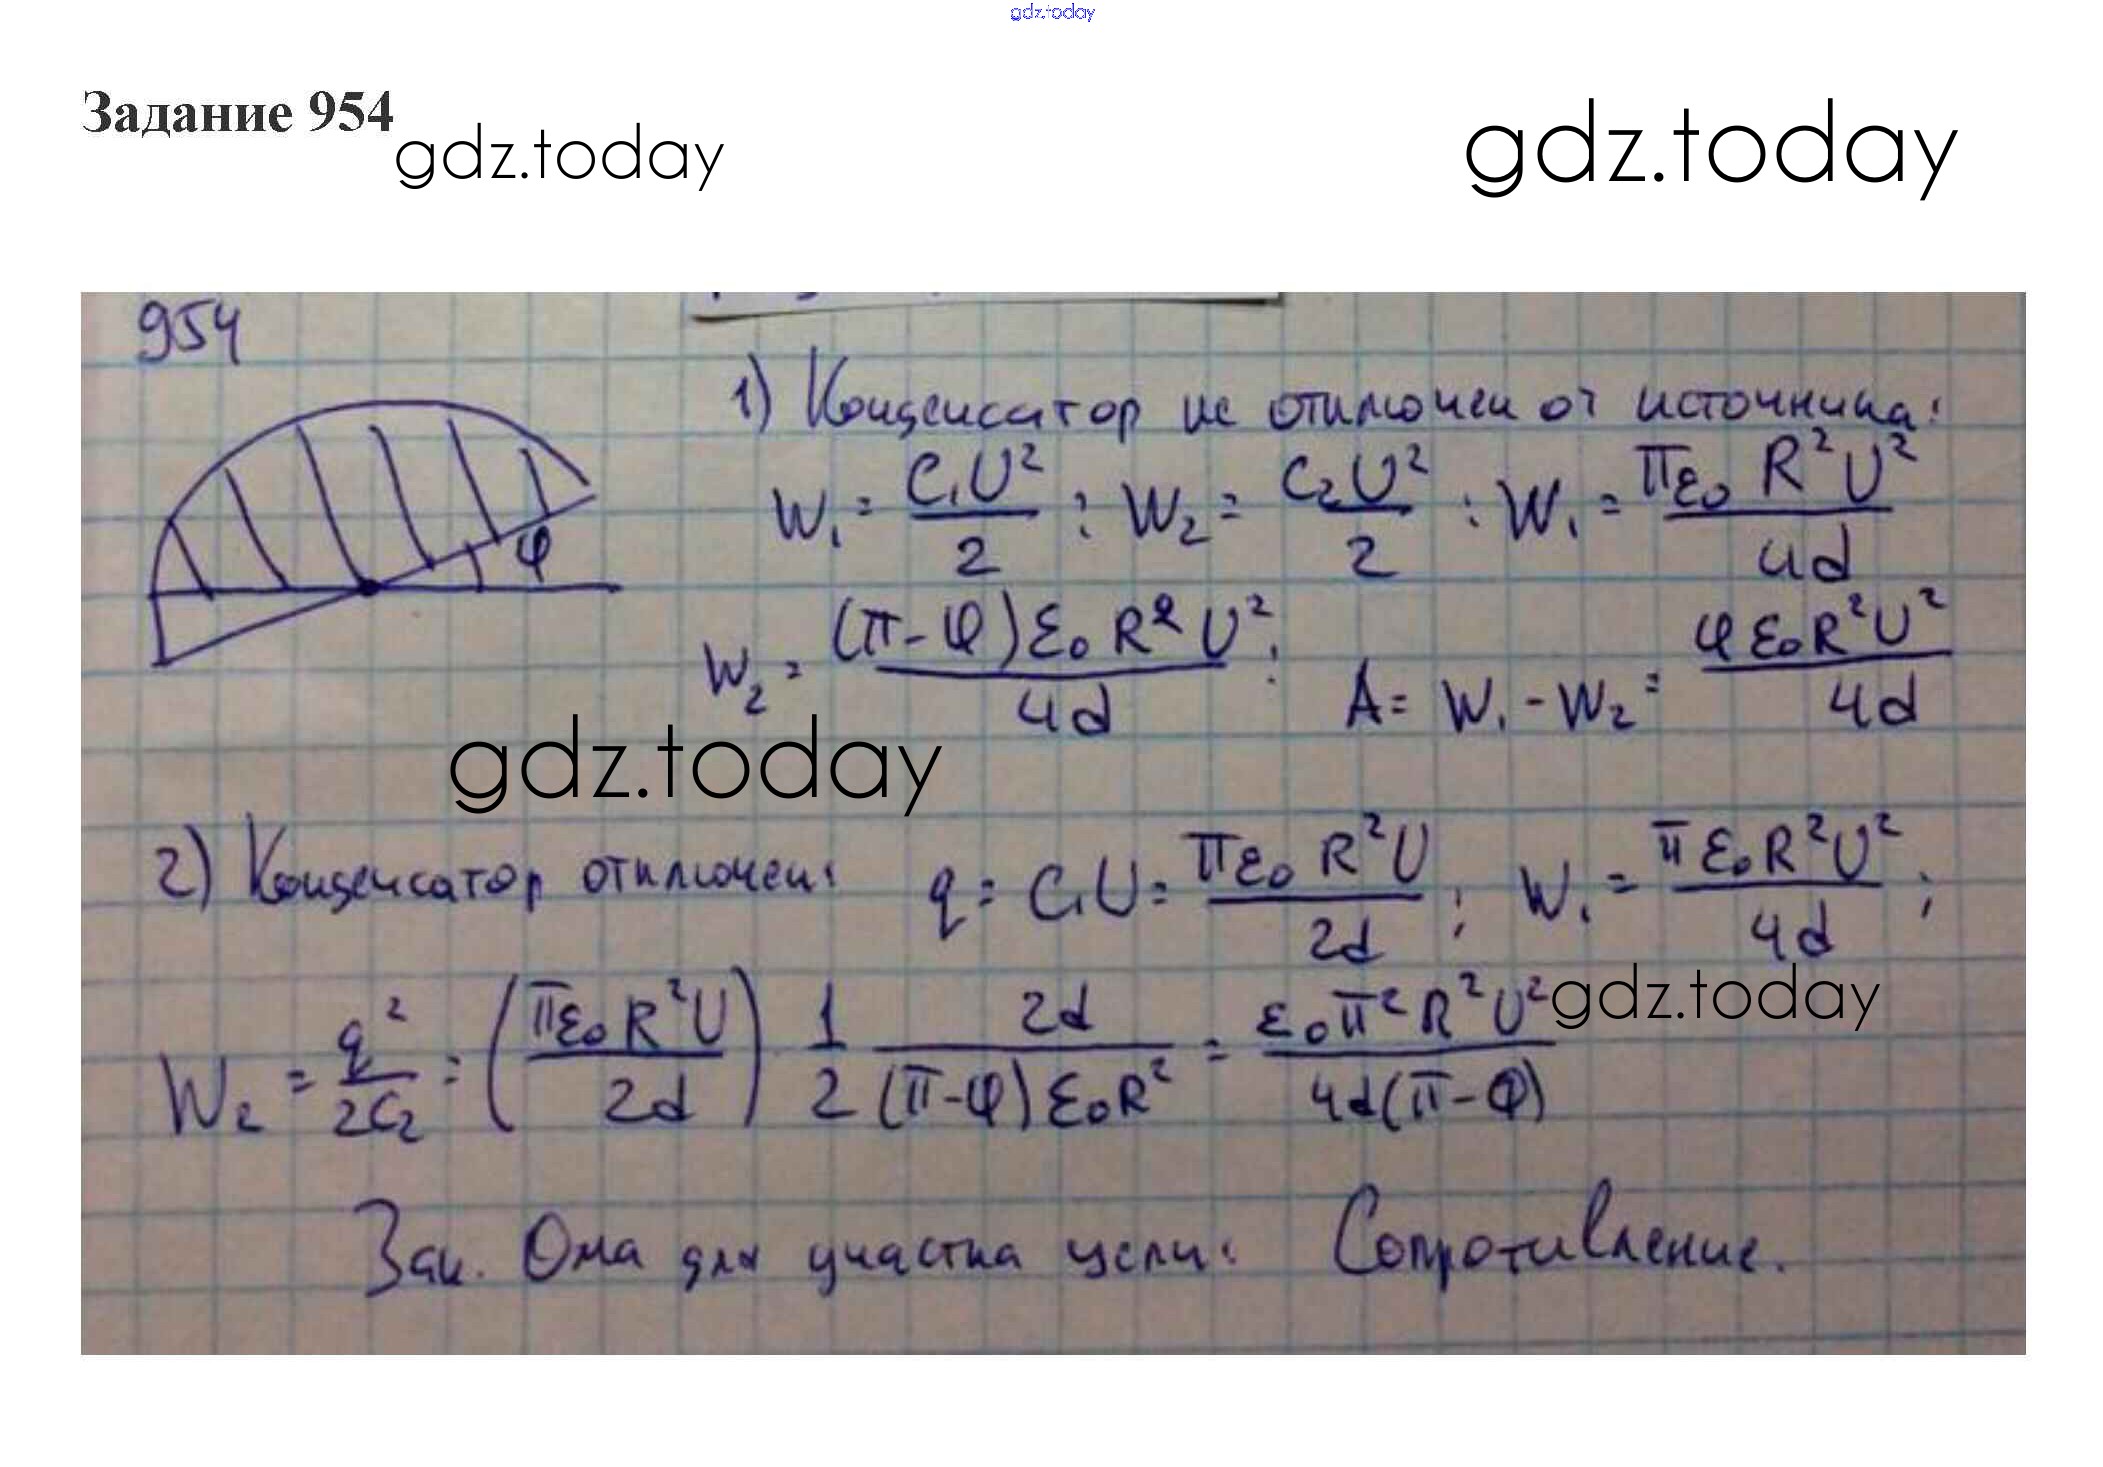 gdz.today
Задание 954
gdz.today
gdz.today
954
1) Конденсатор не отключен от источника:
W₁ = C₁U²/2 ; W₂ = C₂U²/2 ; W₁ = πε₀R²U²/4d
φ
W₂ = (π-φ)ε₀R²U²/4d ; A = W₁ - W₂ = φε₀R²U²/4d
gdz.today
2) Конденсатор отключен: q = C₁U = πε₀R²U/2d ; W₁ = πε₀R²U²/4d ;
gdz.today
W₂ = q²/2C₂ = (πε₀R²U/2d) 1/2 2d/(π-φ)ε₀R² = ε₀π²R²U²/4d(π-φ)
Зак. Ома для участка цепи: Сопротивление.